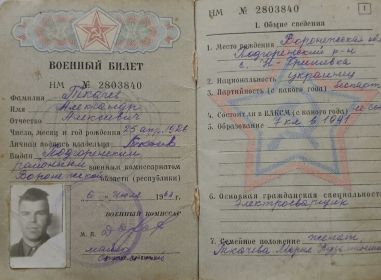 ВОЕННЫЙ БИЛЕТ
НМ № 2803840
Фамилия Ткачев
Имя Александр
Отчество Алексеевич
Число, месяц и год рождения 25 апр. 1926
Личная подпись владельца
Выдан Подгоренским
районным военным комиссариатом
Воронежской области (республики)
6 июля 19
ВОЕННЫЙ КОМИССАР
М. П.
майор
НМ № 2803840
1
I. Общие сведения
1. Место рождения Воронежская обл
Подгоренский р-н
с. Н-
2. Национальность украинец
3. Партийность (с какого года) беспарт
4. Состоит ли в ВЛКСМ (с какого года)
5. Образование 7 кл в 1941
6. Основная гражданская специальность
Электросварщик
7. Семейное положение женат
Ткачева Мария